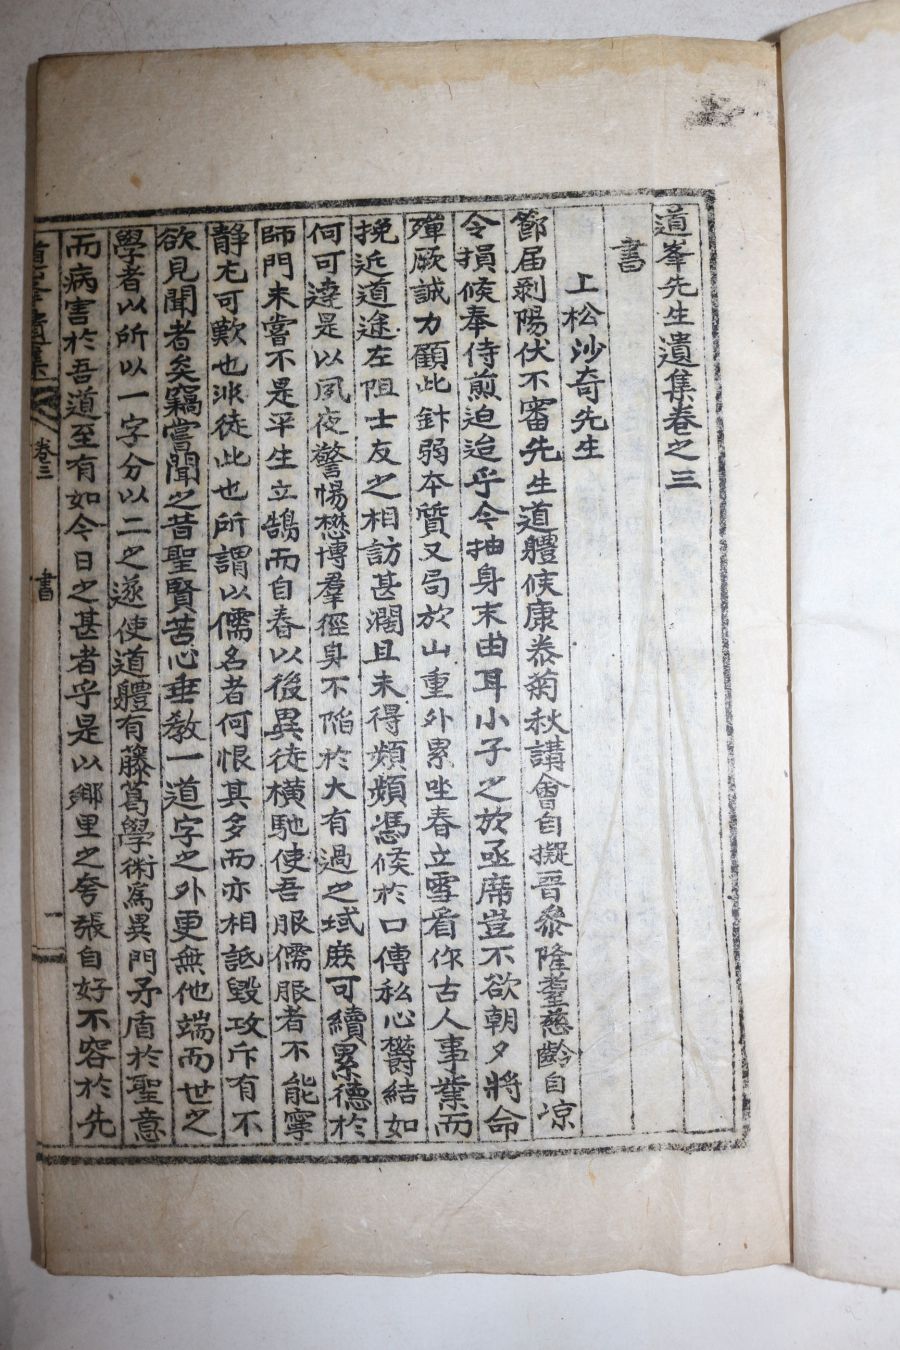 道峯先生遺集卷之三
書
上松沙奇先生
節届剥陽伏不審先生道體候康泰菊秋講會自擬晉參隆耋慈齡自凉
令損候奉侍煎迫迨乎今抽身末由耳小子之於函席豈不欲朝夕將命
殫厥誠力顧此孱弱本質又局於山重外累坐春立雪看作古人事業而
挽近道途左阻士友之相訪甚濶且未得頻頻憑候於口傳私心欝結如
何可達是以夙夜警惕懋博羣徑臭不陷於大有過之域庶可續累德於
師門未嘗不是平生立鵠而自春以後異徒橫馳使吾服儒服者不能寧
静尤可歎也非徒此也所謂以儒名者何恨其多而亦相詆毀攻斥有不
欲見聞者矣竊嘗聞之昔聖賢苦心垂教一道字之外更無他端而世之
學者以所以一字分以二之遂使道體有藤葛學術寫異門矛盾於聖意
而病害於吾道至有如今日之甚者乎是以鄉里之夸張自好不容於先
卷三 書 一